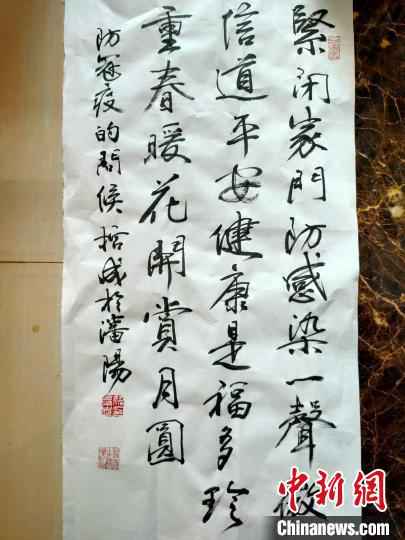 緊閉家門防感染一聲微
信道平安健康是福多珍
重春暖花開賞月圓
防冠疫的問候成於瀋陽
中新網
Chinanews.com